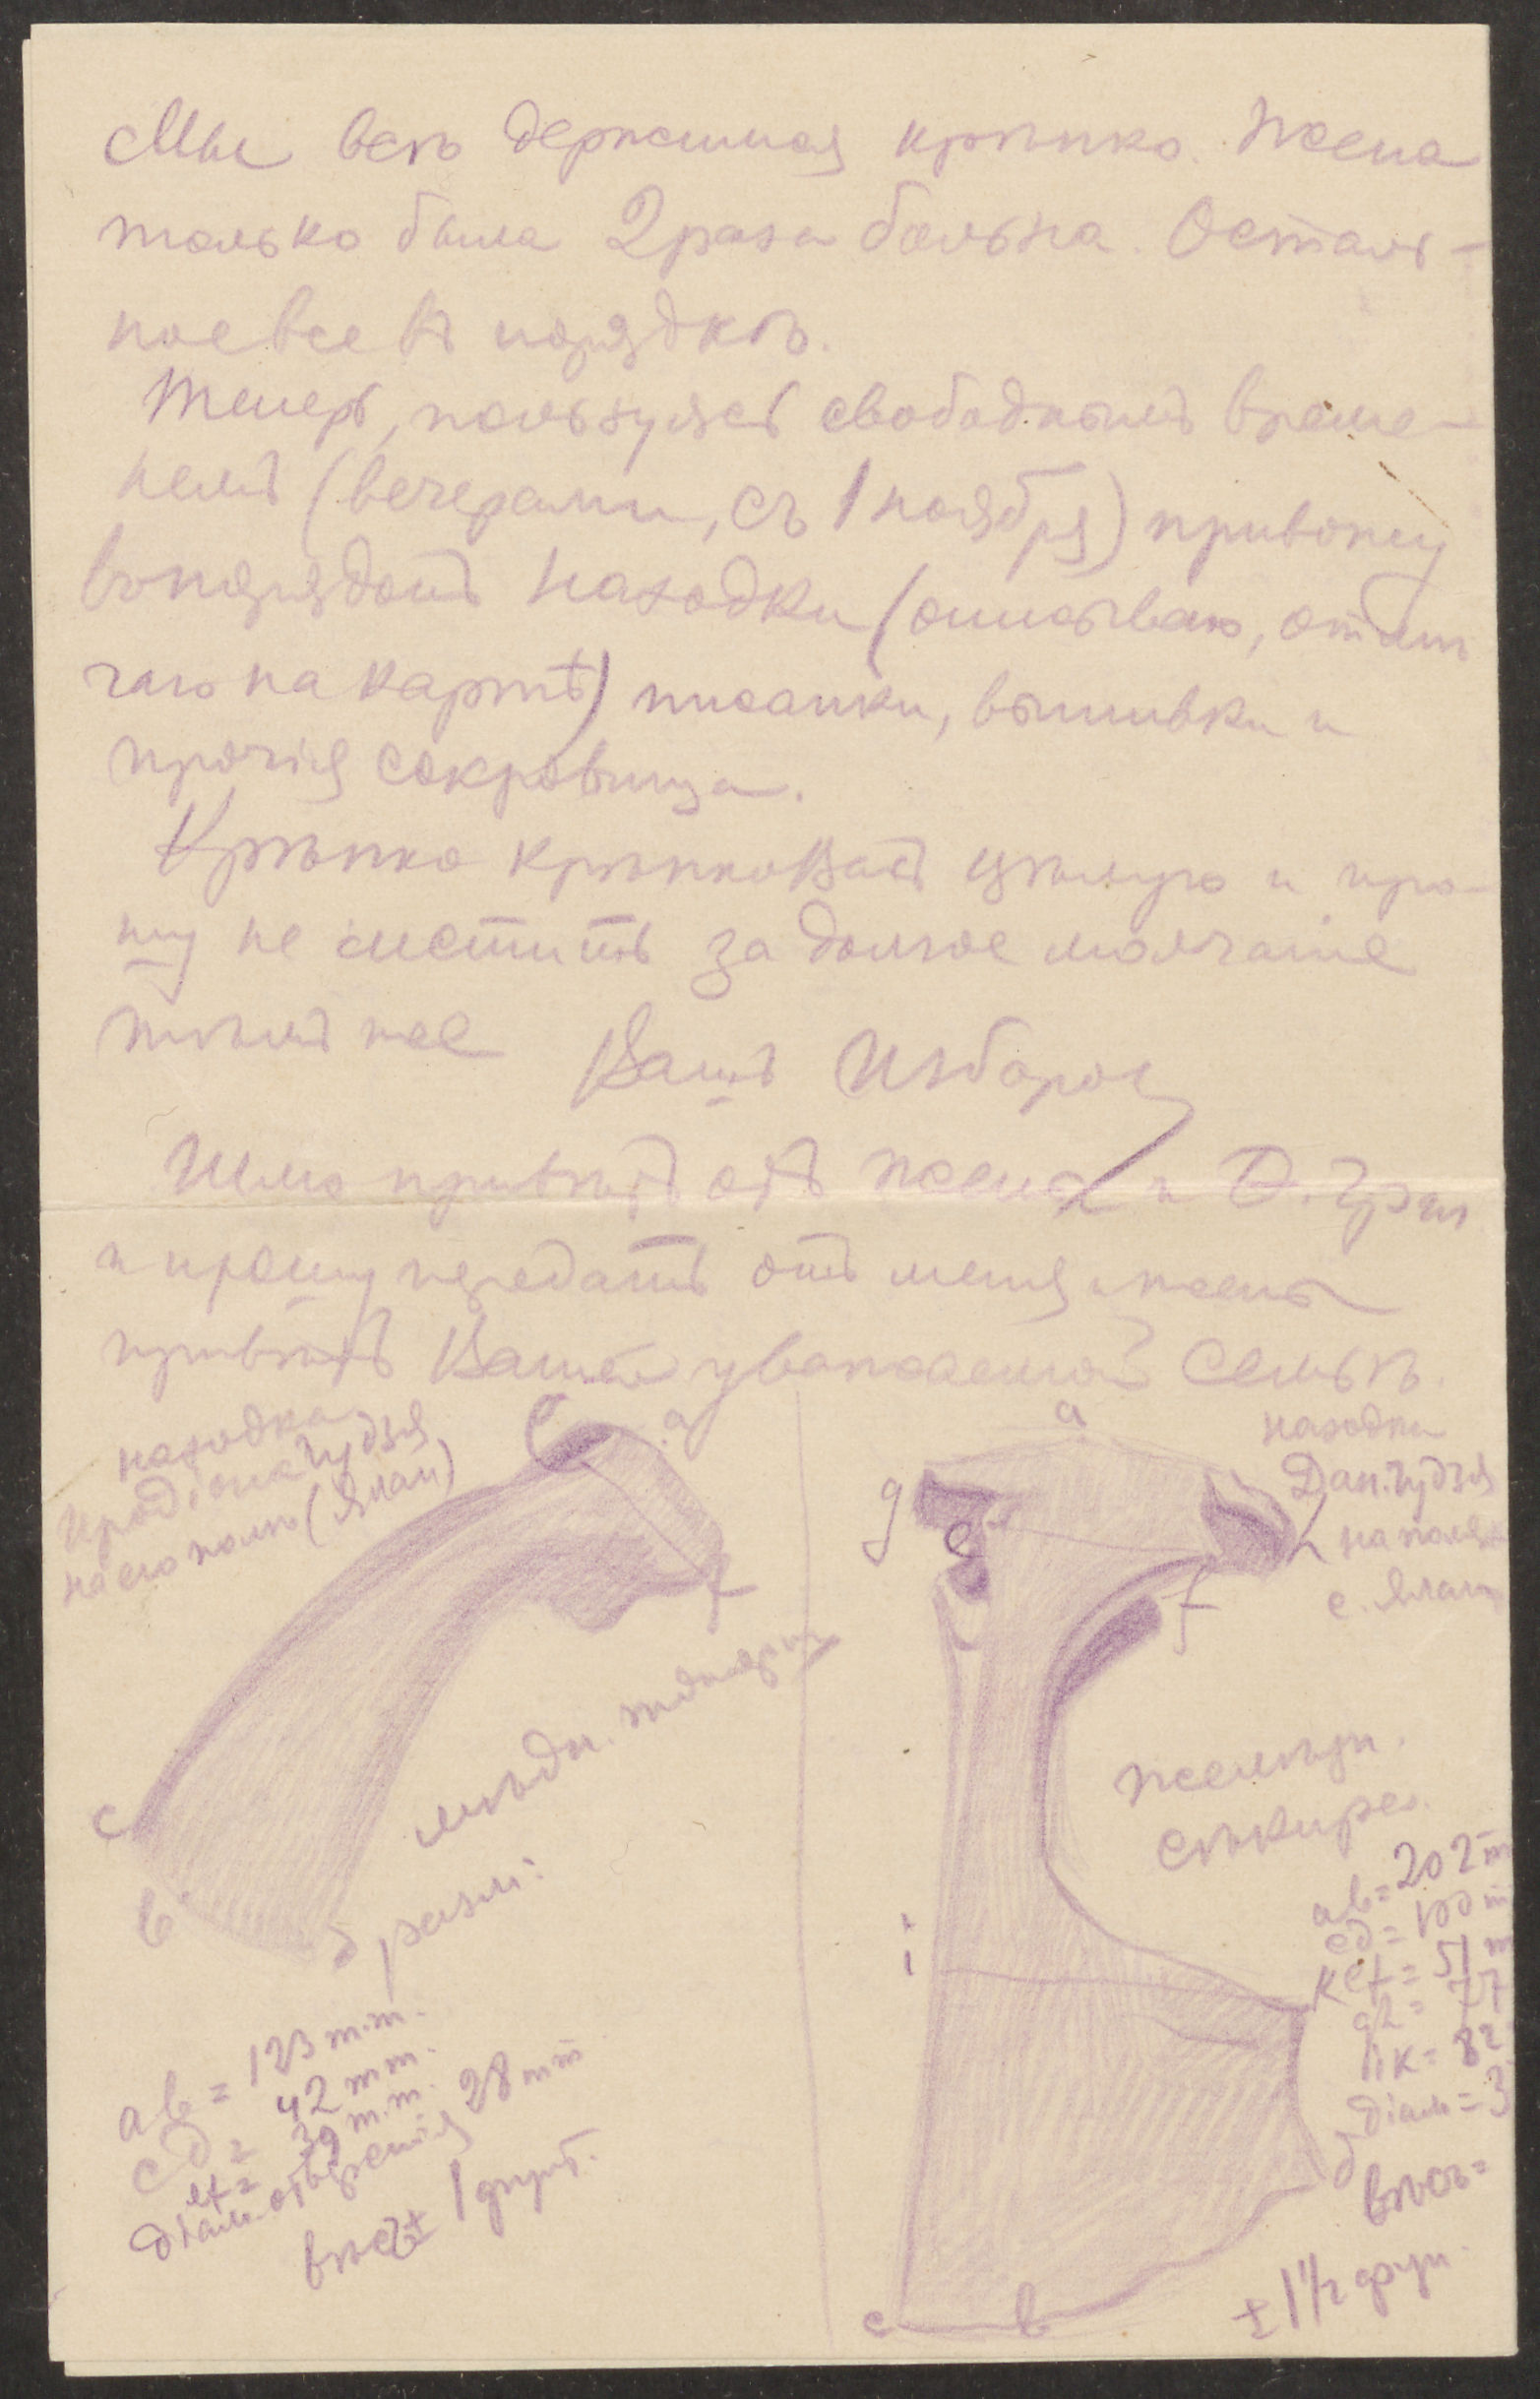 Мы всѣ держимся крѣпко. Жена
только была 2 раза больна. Осталь-
ное все въ порядкѣ.
Теперь, пользуясь свободнымъ време-
немъ (вечерами, съ 1 ноября) привожу
въ порядокъ находки (описываю, отмѣ
чаю на картѣ) писанки, вышивки и
прочія сокровища.
Крѣпко крѣпко Васъ цѣлую и про-
шу не мстить за долгое молчаніе
тѣмъ же Вашъ
Шлю привѣтъ отъ жены и
и прошу передать отъ меня и жены
привѣтъ Вашей уважаемой семьѣ.
находка
Иродіона Гудзя
на его полѣ (Ялан)
e a
f
c
b
d
мѣдн.
разм:
ab = 123 m.m.
cd = 42 m.m.
ef = 39 m.m.
діам. отверстія 28 mm
вѣсъ ± 1 фунт.
a
находка
Дан. Гудзя
на поля
с. Ялан
g
e
f
h
желѣзн.
сѣкира
ab = 202 m
cd = 100 m
ef = 51 m
gh = 77
ik = 82
діам = 3
вѣсъ =
± 1 1/2 фун.
i
k
d
c b